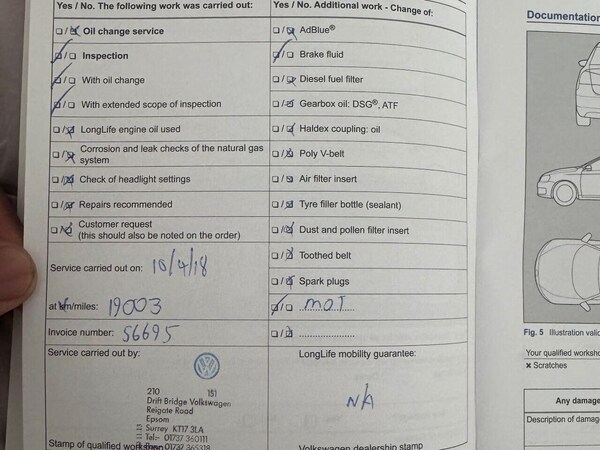 Yes / No. The following work was carried out:
Oil change service
Inspection
With oil change
With extended scope of inspection
LongLife engine oil used
Corrosion and leak checks of the natural gas
system
Check of headlight settings
Repairs recommended
Customer request
(this should also be noted on the order)
Service carried out on: 10/4/18
at km/miles: 19003
Invoice number: 56695
Service carried out by:
210 151
Drift Bridge Volkswagen
Reigate Road
Epsom
Surrey KT17 3LA
Tel:- 01737 360111
01737 365318
Stamp of qualified workshop
Yes / No. Additional work - Change of:
AdBlue®
Brake fluid
Diesel fuel filter
Gearbox oil: DSG®, ATF
Haldex coupling: oil
Poly V-belt
Air filter insert
Tyre filler bottle (sealant)
Dust and pollen filter insert
Toothed belt
Spark plugs
MOT
LongLife mobility guarantee:
N/A
Volkswagen dealership stamp
Documentation
Fig. 5 Illustration
Your qualified
× Scratches
Any damage
Description of